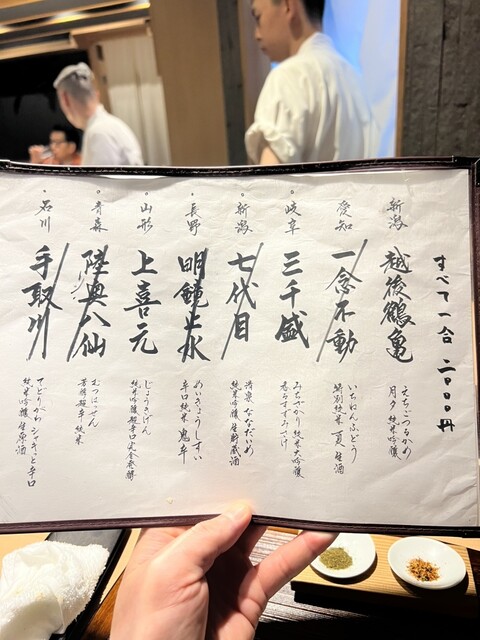 すべて一合 二〇〇〇円
新潟
越後鶴亀
えちごつるかめ
月夕 純米吟醸
愛知
一念不動
いちねんふどう
特別純米 夏 生酒
岐阜
三千盛
みちさかり 純米大吟醸
新潟
七代目
ななだいめ
純米吟醸 生貯蔵酒
長野
明鏡止水
めいきょうしすい
辛口純米 鬼辛
山形
上喜元
じょうきげん
純米吟醸 超辛口 完全発酵
青森
陸奥八仙
むつはっせん
超辛 純米
石川
手取川
てどりがわ シャキッと辛口
純米吟醸 生原酒